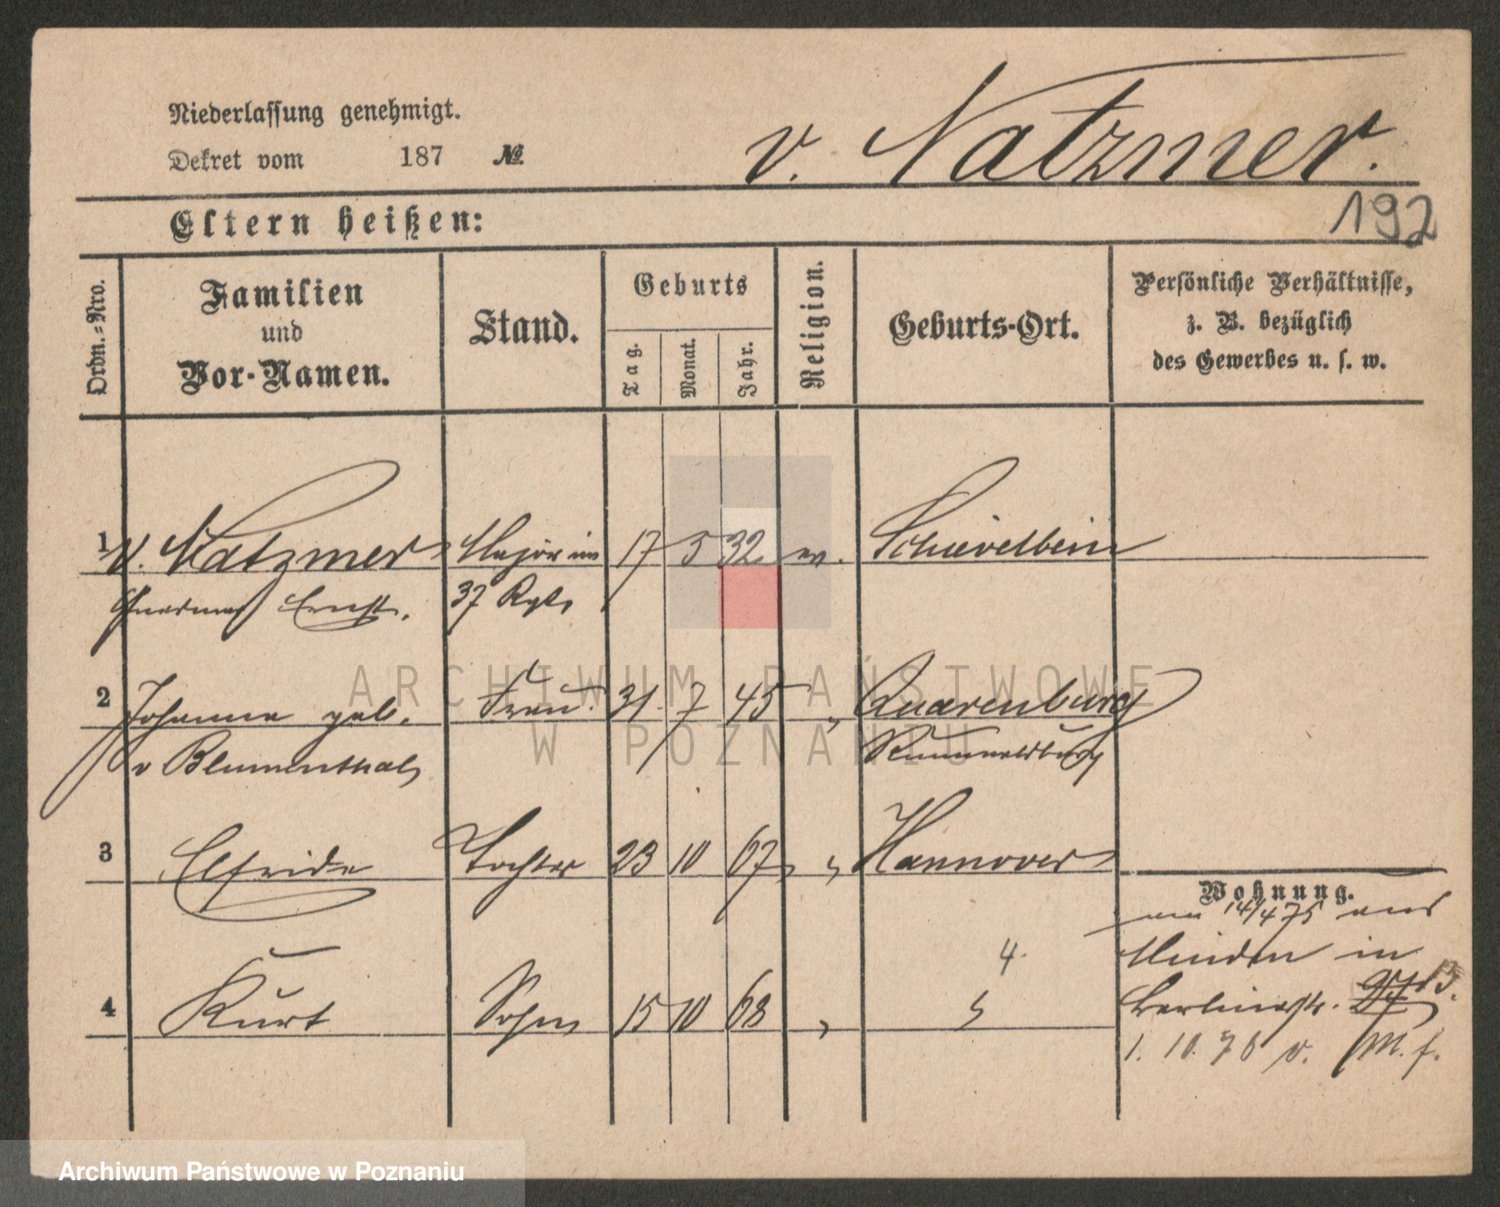 Niederlassung genehmigt.
Dekret vom 187 №
v. Natzmer.
192
Eltern heißen:
Ordn.=Nro.
Familien
und
Vor-Namen.
Stand.
Geburts
Tag.
Monat.
Jahr.
Religion.
Geburts-Ort.
Persönliche Verhältnisse,
z. B. bezüglich
des Gewerbes u. s. w.
1 v. Natzmer Major im 17 5 32 ev. Schievelbein
Ernst. 37 Rgts
2 Johanna geb. Frau. 31. 7 45 „ Quarenburg
v Blumenthal
3 Elfride Tochter 23 10 67 „ Hannover
Wohnung.
14/4 75 aus
4.
Minden in
4 Kurt Sohn 15 10 68 „
Berlinerstr.
1. 10. 76 v.
ARCHIWUM PAŃSTWOWE
W POZNANIU
Archiwum Państwowe w Poznaniu